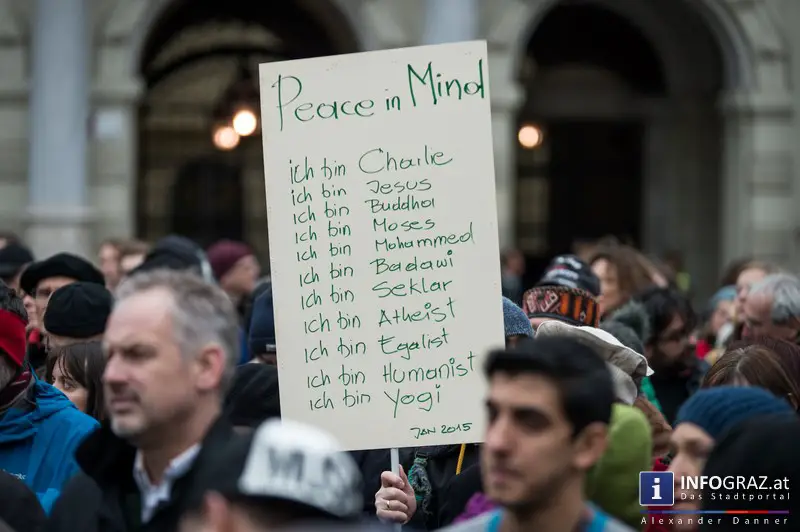 Peace in Mind
ich bin Charlie
ich bin Jesus
ich bin Buddha
ich bin Moses
ich bin Mohammed
ich bin Badawi
ich bin Seklar
ich bin Atheist
ich bin Egalist
ich bin Humanist
ich bin Yogi
JAN 2015
i INFOGRAZ.at
Das Stadtportal
Alexander Danner